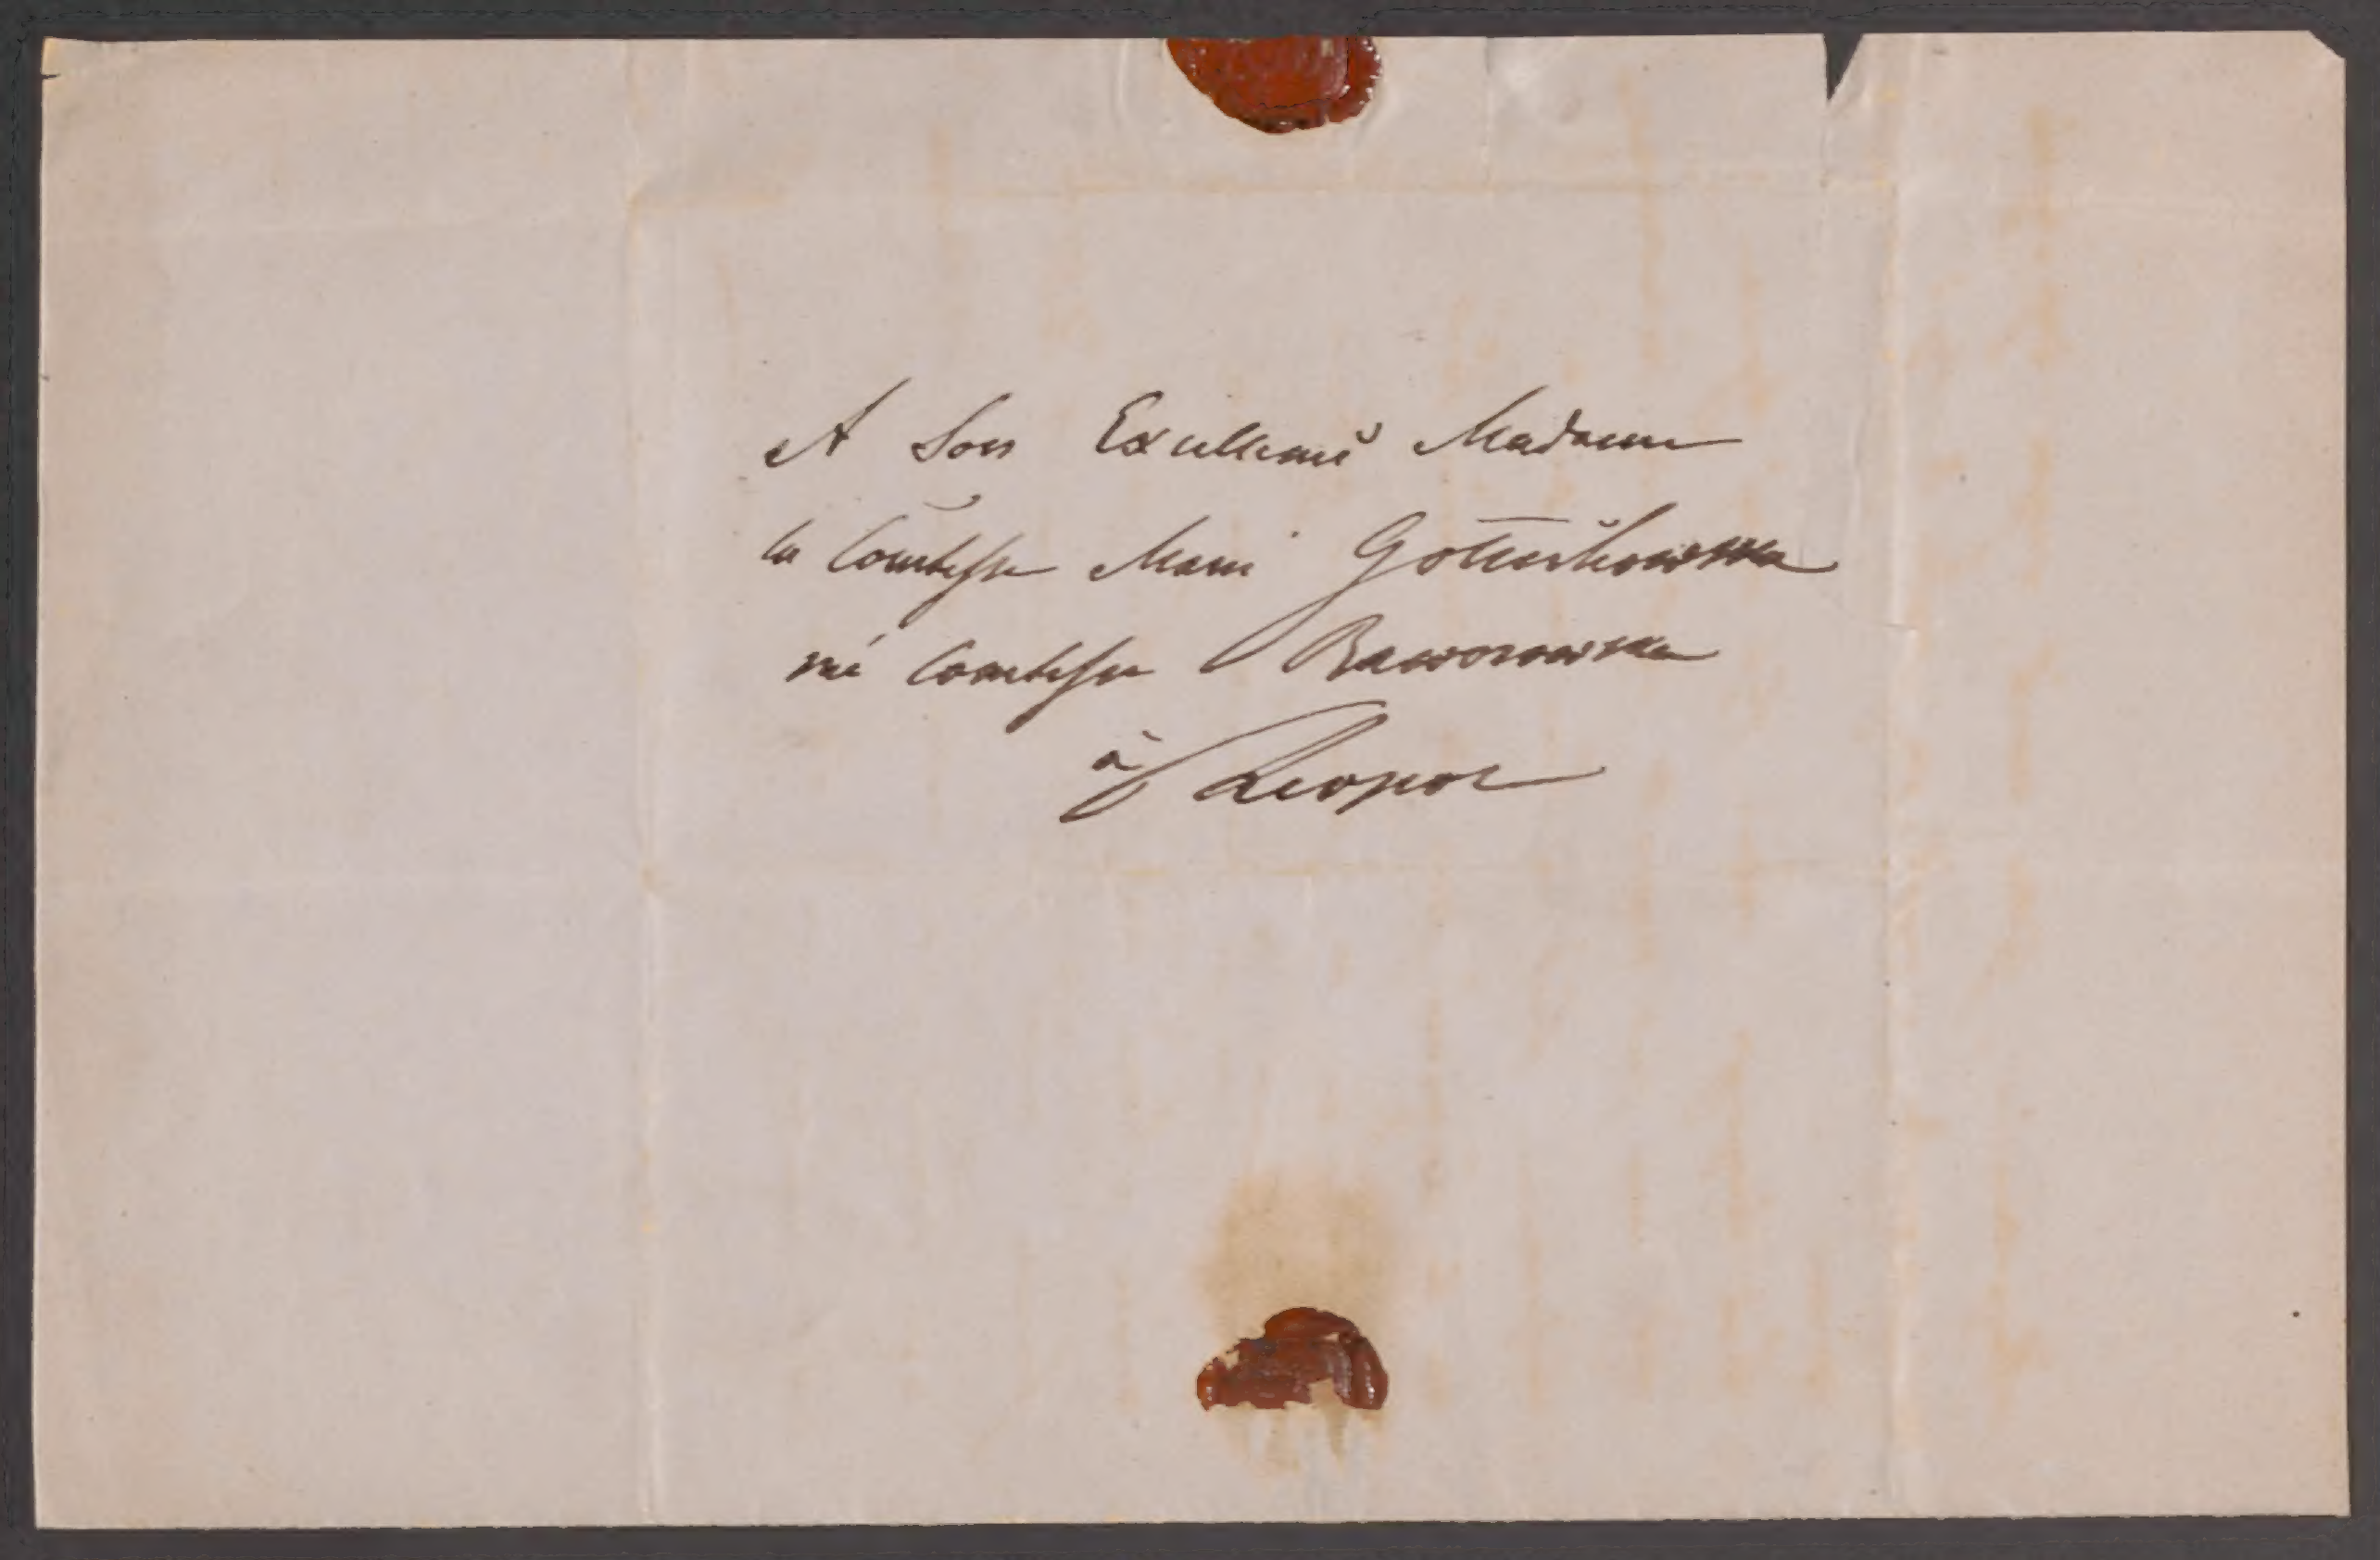 A Son Excellence Madame
la Comtesse Marie Gołuchowska
née Comtesse Baworowska
à Leopol